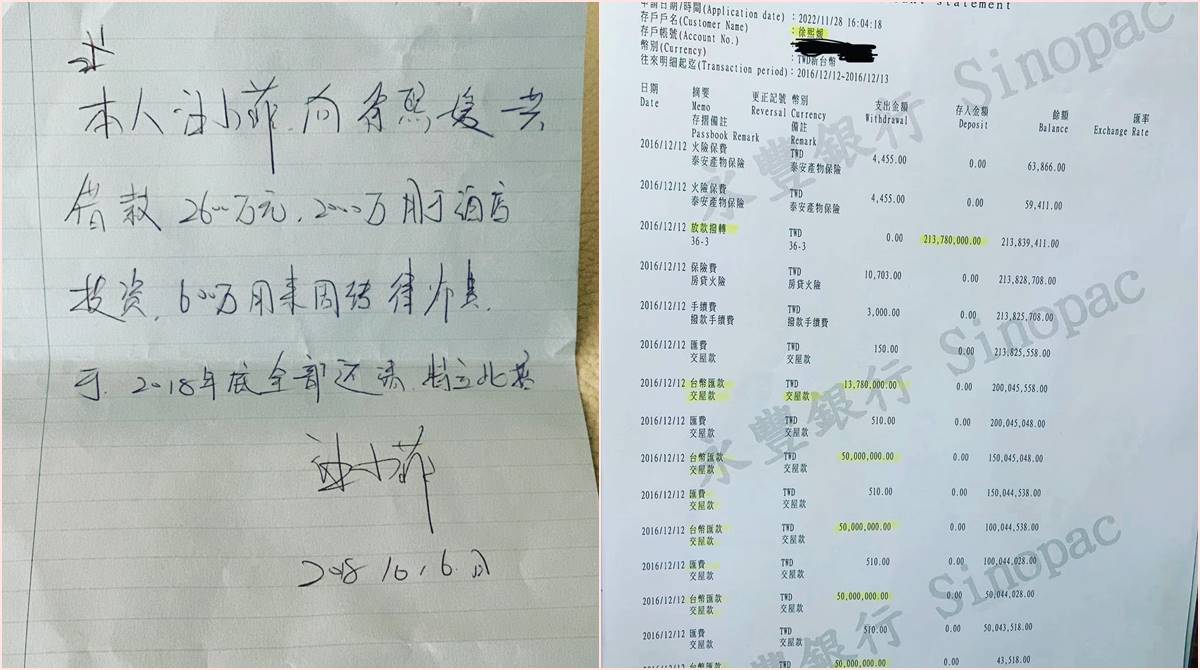 本人汪小菲向徐熙媛共
借款 2600万元,2000万用于酒店
投资,600万用来周转律师
于 2018年底全部还清 特立此据
汪小菲
2018 10, 6.
statement
申請日期/時間(Application date) : 2022/11/28 16:04:18
存戶戶名(Customer Name) : 徐熙媛
存戶帳號(Account No.)
幣別(Currency) : TWD新台幣
往來明細起迄(Transaction period) : 2016/12/12~2016/12/13
日期 摘要 更正記號 幣別 支出金額 存入金額 餘額 匯率
Date Memo Reversal Currency Withdrawal Deposit Balance Exchange Rate
存摺備註 備註
Passbook Remark Remark
2016/12/12 火險保費 TWD 4,455.00 0.00 63,866.00
泰安產物保險 泰安產物保險
2016/12/12 火險保費 TWD 4,455.00 0.00 59,411.00
泰安產物保險 泰安產物保險
2016/12/12 放款撥轉 TWD 0.00 213,780,000.00 213,839,411.00
36-3 36-3
2016/12/12 保險費 TWD 10,703.00 0.00 213,828,708.00
房貸火險 房貸火險
2016/12/12 手續費 TWD 3,000.00 0.00 213,825,708.00
撥款手續費 撥款手續費
2016/12/12 匯費 TWD 150.00 0.00 213,825,558.00
交屋款 交屋款
2016/12/12 台幣匯款 TWD 13,780,000.00 0.00 200,045,558.00
交屋款 交屋款
2016/12/12 匯費 TWD 510.00 0.00 200,045,048.00
交屋款 交屋款
2016/12/12 台幣匯款 TWD 50,000,000.00 0.00 150,045,048.00
交屋款 交屋款
2016/12/12 匯費 TWD 510.00 0.00 150,044,538.00
交屋款 交屋款
2016/12/12 台幣匯款 TWD 50,000,000.00 0.00 100,044,538.00
交屋款 交屋款
2016/12/12 匯費 TWD 510.00 0.00 100,044,028.00
交屋款 交屋款
2016/12/12 台幣匯款 TWD 50,000,000.00 0.00 50,044,028.00
交屋款 交屋款
2016/12/12 匯費 TWD 510.00 0.00 50,043,518.00
交屋款 交屋款
2016/12/12 台幣匯款 TWD 50,000,000.00 0.00 43,518.00
永豐銀行 Sinopac
永豐銀行 Sinopac
永豐銀行 Sinopac